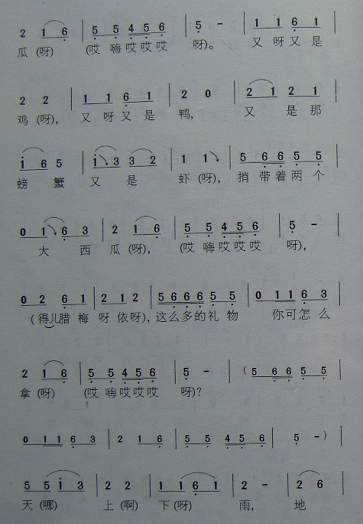 2 1 6 | 5 5 4 5 6 | 5 - | 1 1 6 1 |
瓜 (呀) (哎 嗨哎哎哎 呀)。 又 呀又 是
2 2 | 1 1 6 1 | 2 0 | 2 1 2 1 |
鸡 (呀), 又 呀又 是 鸭, 又 是 那
i 6 5 | i 3 3 2 | 1 1 | 5 6 6 5 5 |
螃 蟹 又 是 虾 (呀), 捎 带着 两 个
0 1 6 3 | 2 1 6 | 5 5 4 5 6 | 5 - |
大 西 瓜 (呀), (哎 嗨哎哎哎 呀),
0 2 6 1 | 2 1 2 | 5 6 6 6 5 5 | 0 1 1 6 3 |
(得儿腊 梅 呀 依呀), 这么多的礼 物 你可怎 么
2 1 6 | 5 5 4 5 6 | 5 - | ( 5 6 6 5 5 |
拿 (呀) (哎 嗨哎哎哎 呀)?
0 1 1 6 3 | 2 1 6 | 5 5 4 5 6 | 5 - ) |
5 5 i 3 | 2 2 | 1 6 | 2 - | 2 6 |
天 (哪) 上 (啊) 下 (呀) 雨, 地